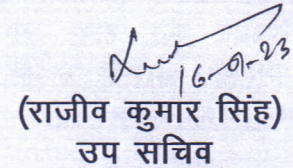 16-9-23
(राजीव कुमार सिंह)
उप सचिव